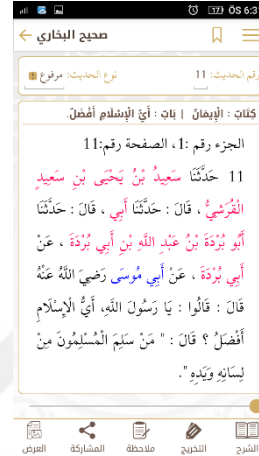 ÖS 6:3
صحيح البخاري
رقم الحديث: 11 نوع الحديث: مرفوع
كِتَابُ : الْإِيمَانُ | بَابٌ : أَيُّ الْإِسْلَامِ أَفْضَلُ.
الجزء رقم :1، الصفحة رقم:11
11 حَدَّثَنَا سَعِيدُ بْنُ يَحْيَى بْنِ سَعِيدٍ
الْقُرَشِيُّ ، قَالَ : حَدَّثَنَا أَبِي ، قَالَ : حَدَّثَنَا
أَبُو بُرْدَةَ بْنُ عَبْدِ اللَّهِ بْنِ أَبِي بُرْدَةَ ، عَنْ
أَبِي بُرْدَةَ ، عَنْ أَبِي مُوسَى رَضِيَ اللَّهُ عَنْهُ
قَالَ : قَالُوا : يَا رَسُولَ اللَّهِ، أَيُّ الْإِسْلَامِ
أَفْضَلُ ؟ قَالَ : " مَنْ سَلِمَ الْمُسْلِمُونَ مِنْ
لِسَانِهِ وَيَدِهِ ".
الشرح التخريج ملاحظة المشاركة العرض